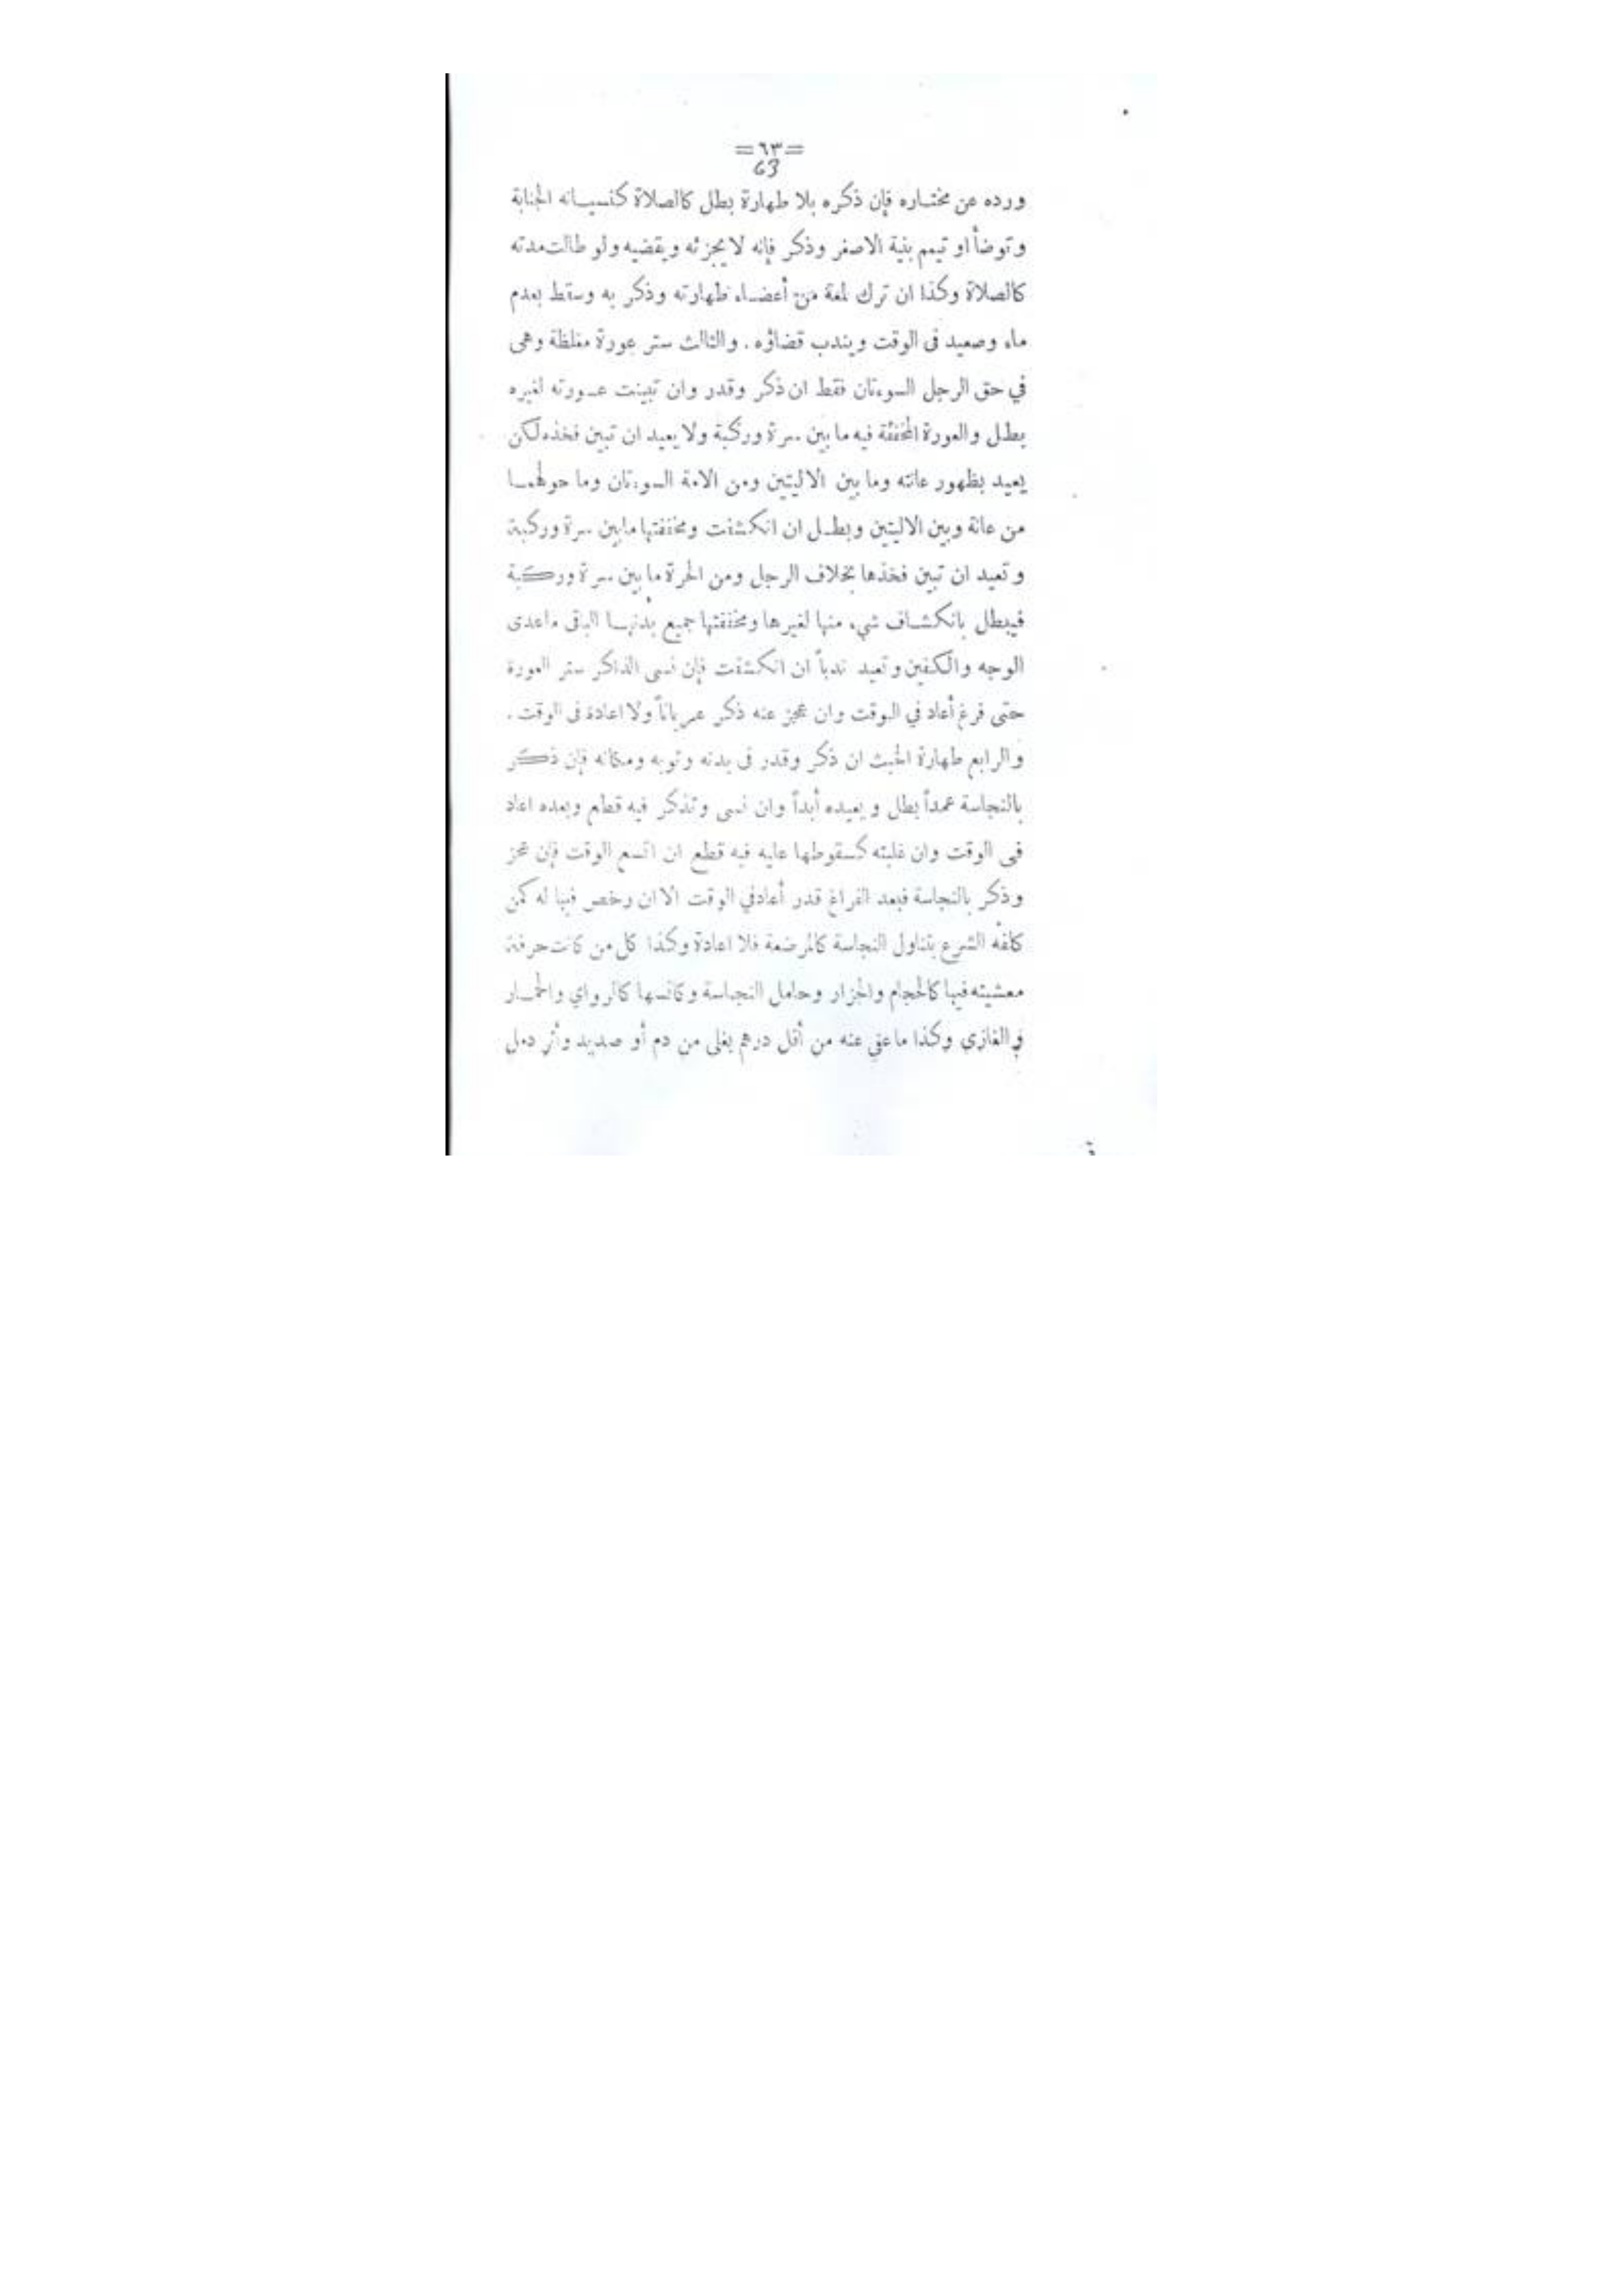 =٦٣=
63
ورده عن مختاره فإن ذكره بلا طهارة بطل كالصلاة كنسيانه الجنابة
وتوضأ او تيمم بنية الاصغر وذكر فإنه لا يجزئه ويقضيه ولو طالت مدته
كالصلاة وكذا ان ترك لمعة من أعضاء طهارته وذكر به وسقط بعدم
ماء وصعيد فى الوقت ويندب قضاؤه . والثالث ستر عورة مغلظة وهى
في حق الرجل السوءتان فقط ان ذكر وقدر وان تبينت عورته لغيره
بطل والعورة المخففة فيه ما بين سرة وركبة ولا يعيد ان تبين فخذه لكن
يعيد بظهور عانته وما بين الاليتين ومن الامة السوءتان وما حولهما
من عانة وبين الاليتين وبطل ان انكشفت ومخففتها مابين سرة وركبة
وتعيد ان تبين فخذها بخلاف الرجل ومن الحرة ما بين سرة وركبة
فيبطل بانكشاف شيء منها لغيرها ومخففتها جميع بدنها الباقى ماعدى
الوجه والكفين وتعيد ندباً ان انكشفت فإن نسى الذاكر ستر العورة
حتى فرغ أعاد في الوقت وان عجز عنه ذكر عرياناً ولا اعادة فى الوقت .
والرابع طهارة الخبث ان ذكر وقدر فى بدنه وثوبه ومكانه فإن ذكر
بالنجاسة عمداً بطل ويعيده أبداً وان نسى وتذكر فيه قطع وبعده اعاد
فى الوقت وان غلبته كسقوطها عليه فيه قطع ان اتسع الوقت فإن عجز
وذكر بالنجاسة فبعد الفراغ قدر أعاد في الوقت الا ان رخص فيها له كمن
كلفه الشرع بتناول النجاسة كالمرضعة فلا اعادة وكذا كل من كانت حرفة
معشيته فيها كالحجام والجزار وحامل النجاسة وكانسها كالرواي والحمار
والغازي وكذا ما عفي عنه من أقل درهم بغلى من دم أو صديد وأثر دمل